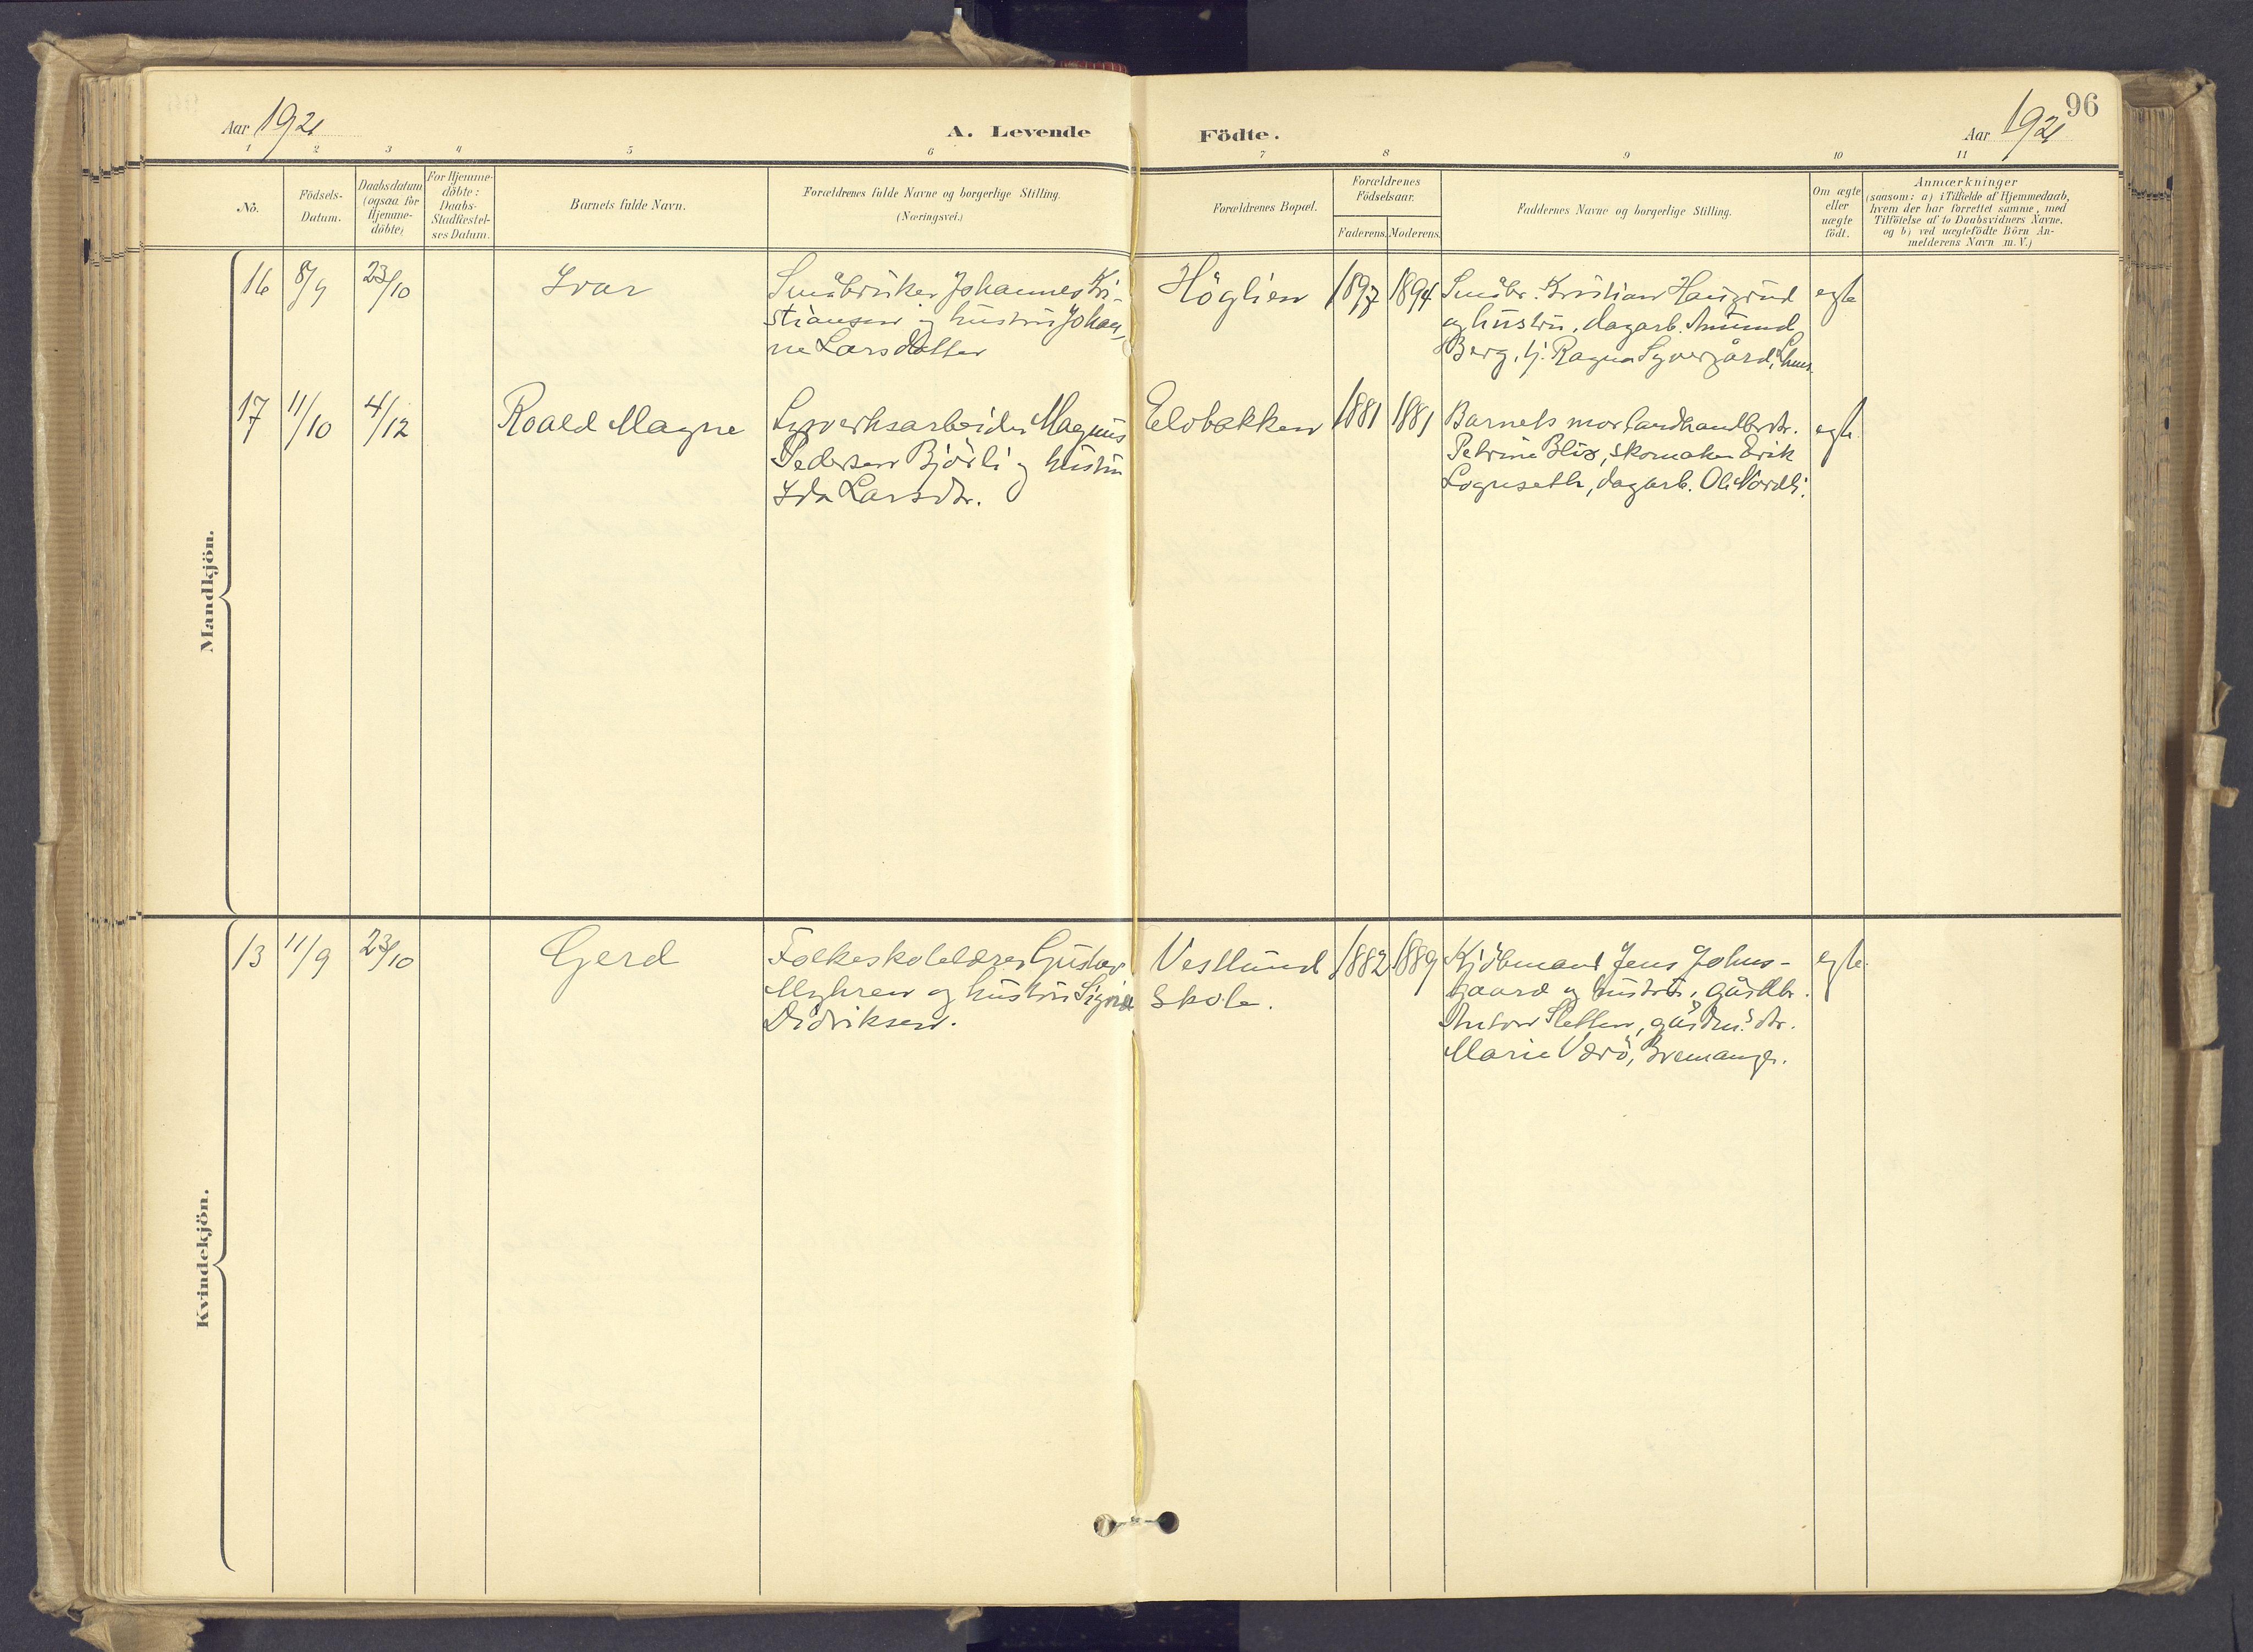 96
Aar 1921
A. Levende Födte.
Aar 1921
1 2 3 4 5 6 7 8 9 10 11
No.
Födsels-
Datum.
Daabsdatum
(ogsaa for
Hjemme-
döbte)
For Hjemme-
döbte:
Daabs-
Stadfæstel-
ses Datum.
Barnets fulde Navn.
Forældrenes fulde Navne og borgerlige Stilling.
(Næringsvei.)
Forældrenes Bopæl.
Forældrenes
Födselsaar.
Faderens. Moderens.
Faddernes Navne og borgerlige Stilling.
Om ægte
eller
uægte
födt.
Anmærkninger
(saasom: a) i Tilfælde af Hjemmedaab,
hvem der har forrettet samme, med
Tilföielse af to Daabsvidners Navne,
og b) ved uægtefödte Börn An-
melderens Navn m. V.)
Mandkjön.
16 8/9 23/10 Ivar
Småbruker Johannes Kri-
stiansen og hustru Johan-
ne Larsdatter
Höglien 1897 1894
Småbr. Kristian Haugrud
og hustru, dagarb. Amund
Berg, tj. Ragna Syvergård,
egte
17 11/10 4/12 Roald Magne
Lysverksarbeider Magnus
Pedersen Björli og hustru
Ida Larsdtr.
Elvbakken 1881 1881
Barnets mor, landhandlerdtr.
Petrine Blix, skomaker Erik
Logneseth, dagarb. Ole Nordli.
egte
Kvindekjön.
13 11/9 23/10 Gerd
Folkeskolelærer Gustav
Myhren og hustru Signe
Didriksen.
Vestlund
Skole.
1882 1889
Kjöbmand Jens Johns-
gaard og hustru, gårdbr.
Anton Sletten, gårdm.s dtr.
Marie Værö, Bremanger.
egte.